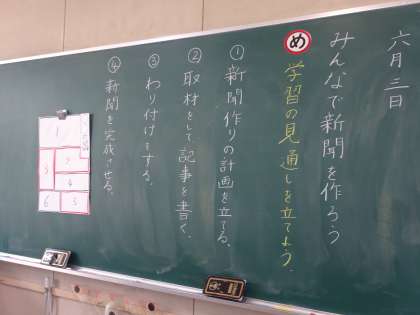 六月三日
みんなで新聞を作ろう
め 学習の見通しを立てよう。
① 新聞作りの計画を立てる。
② 取材をして記事を書く。
③ わり付けをする。
④ 新聞を完成させる。
1
2
3
4
5
6